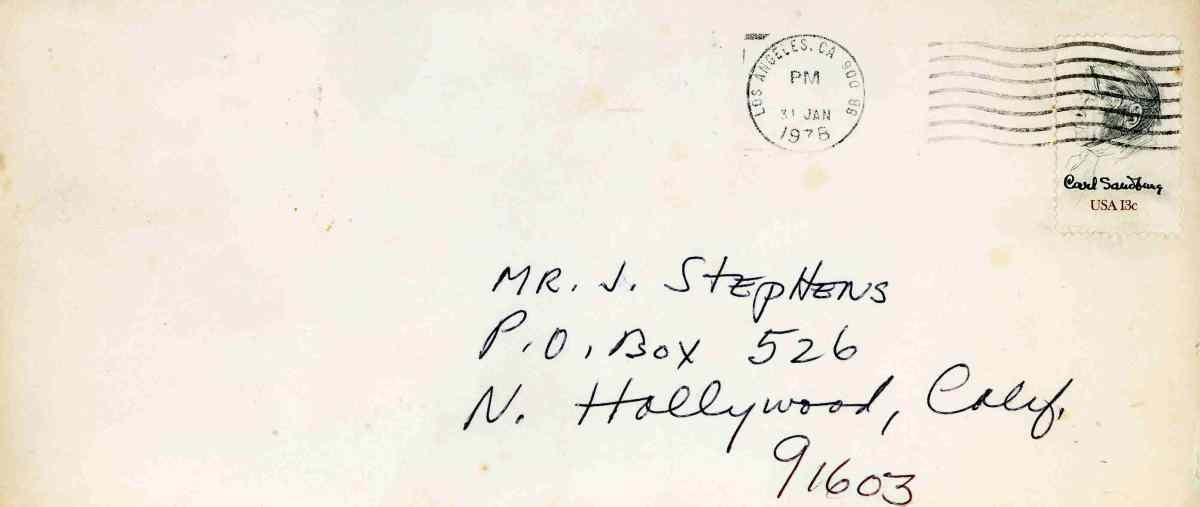 LOS ANGELES, CA 900 88
PM
31 JAN
1978
Carl Sandburg
USA 13c
MR. J. STEPHENS
P.O. BOX 526
N. Hollywood, Calif.
91603